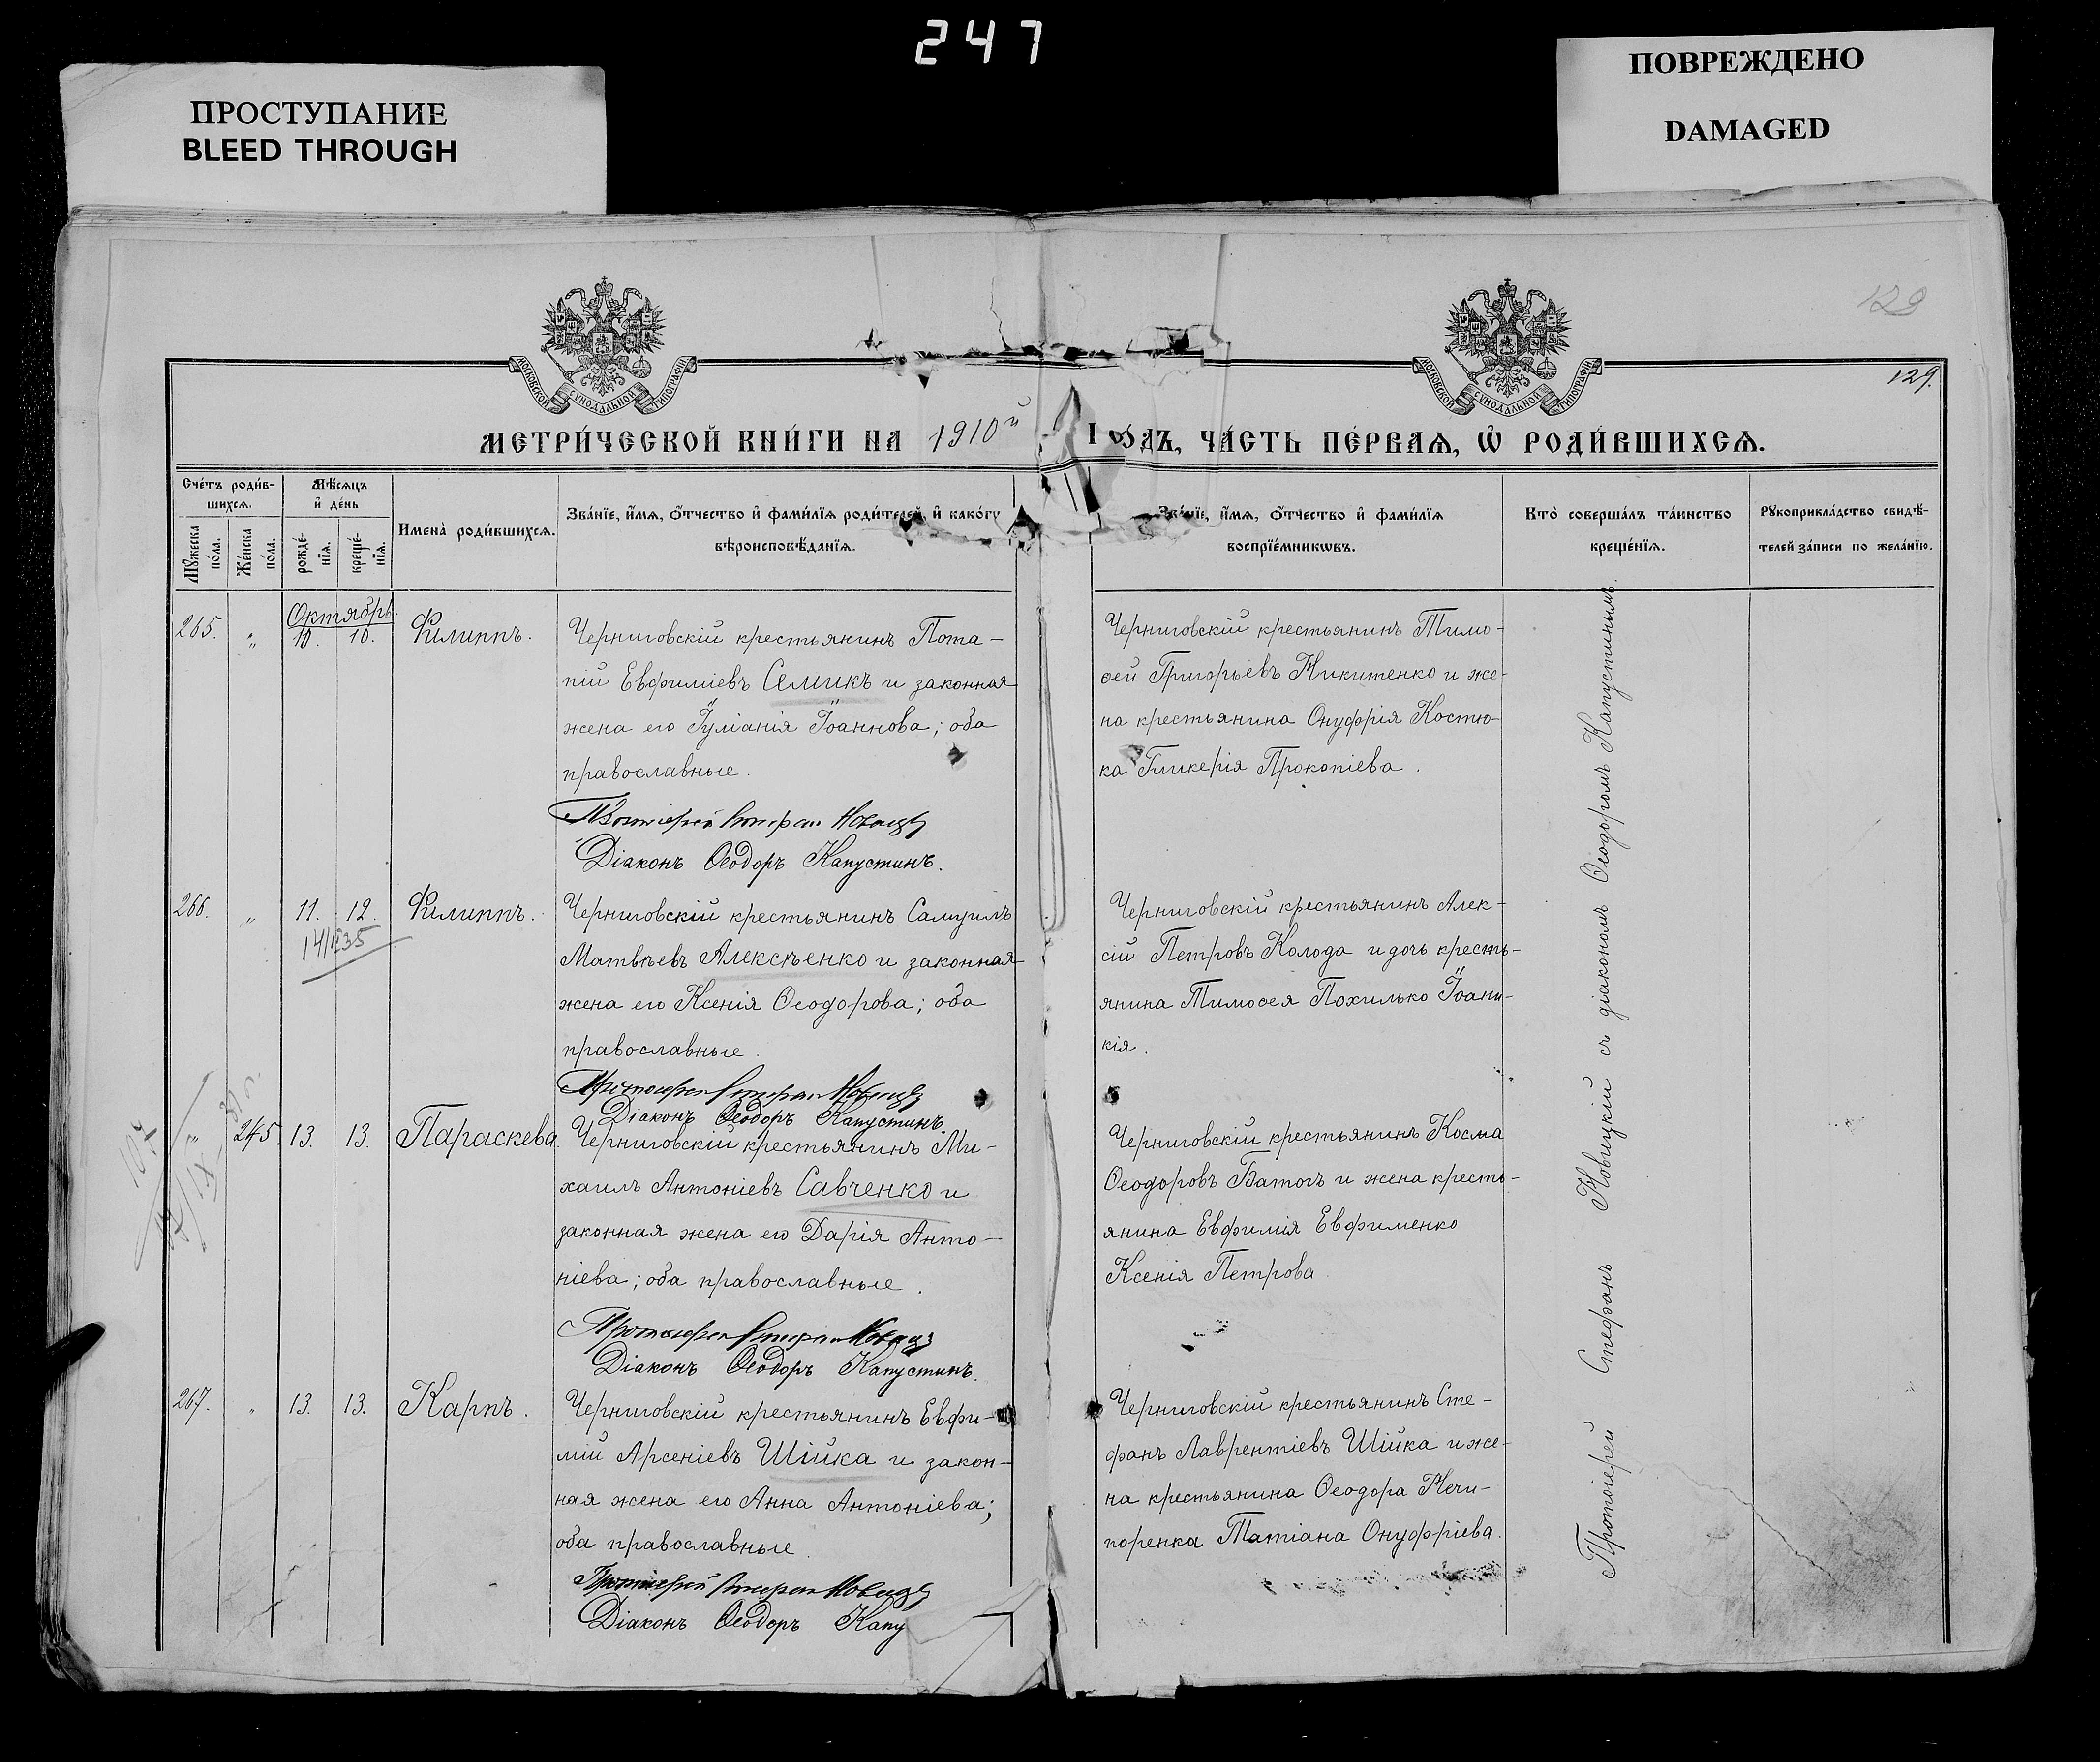 247
ПРОСТУПАНИЕ
BLEED THROUGH
ПОВРЕЖДЕНО
DAMAGED
129
129.
МОСКОВСКОЙ СѴНОДАЛЬНОЙ ТИПОГРАФІИ
МОСКОВСКОЙ СѴНОДАЛЬНОЙ ТИПОГРАФІИ
МЕТРИ́ЧЕСКОЙ КНИ́ГИ НА 1910й ГОДЪ, ЧА́СТЬ ПЕ́РВАѦ, Ѡ҆ РОДИ́ВШИХСѦ.
Сче́тъ роди́в-
шихсѧ.
Мꙋ́жеска по́ла.
Же́нска по́ла.
Мѣ́сѧцъ
и҆ де́нь
рожде́-
нїѧ.
креще́-
нїѧ.
Имена̀ роди́вшихсѧ.
Зва́нїе, и҆́мѧ, ѻ҆́тчество и҆ фами́лїѧ роди́телей, и҆ како́гѡ
вѣроисповѣ́данїѧ.
Зва́нїе, и҆́мѧ, ѻ҆́тчество и҆ фами́лїѧ
воспрїе́мникѡвъ.
Кто̀ соверша́лъ та́инство
креще́нїѧ.
Рꙋкоприкла́дство свидѣ́-
телей за́писи по жела́нїю.
Октябрь.
265. " 10. 10. Филиппъ.
Черниговскій крестьянинъ Пота-
пій Евфиміевъ Семикъ и законная
жена его Іуліанія Іоаннова; оба
православные.
Протоіерей Стефан Новицкій
Діаконъ Ѳеодоръ Капустинъ.
Черниговскій крестьянинъ Тимо-
ѳей Григорьевъ Никитенко и же-
на крестьянина Онуфрія Костю-
ка Гликерія Прокопіева.
266. " 11. 12. Филиппъ.
Черниговскій крестьянинъ Самуилъ
Матвѣевъ Алексѣенко и законная
жена его Ксенія Ѳеодорова; оба
православные.
Протоіерей Стефан Новицкій
Діаконъ Ѳеодоръ Капустинъ.
Черниговскій крестьянинъ Алек-
сій Петровъ Колода и дочь кресть-
янина Тимоѳея Похилько Іоанн-
кія.
" 245. 13. 13. Параскева.
Черниговскій крестьянинъ Ми-
хаилъ Антоніевъ Савченко и
законная жена его Дарія Анто-
ніева; оба православные.
Протоіерей Стефан Новицкій
Діаконъ Ѳеодоръ Капустинъ.
Черниговскій крестьянинъ Косма
Ѳеодоровъ Батогъ и жена кресть-
янина Евфимія Евфименко
Ксенія Петрова
267. " 13. 13. Карпъ.
Черниговскій крестьянинъ Евфи-
мій Арсеніевъ Шійка и закон-
ная жена его Анна Антоніева;
оба православные.
Протоіерей Стефан Новицкій
Діаконъ Ѳеодоръ Капу
Черниговскій крестьянинъ Сте-
фанъ Лаврентіевъ Шійка и же-
на крестьянина Ѳеодора Нечи-
поренка Татіана Онуфріева.
Протоіерей Стефанъ Новицкій съ діакономъ Ѳеодоромъ Капустинымъ.